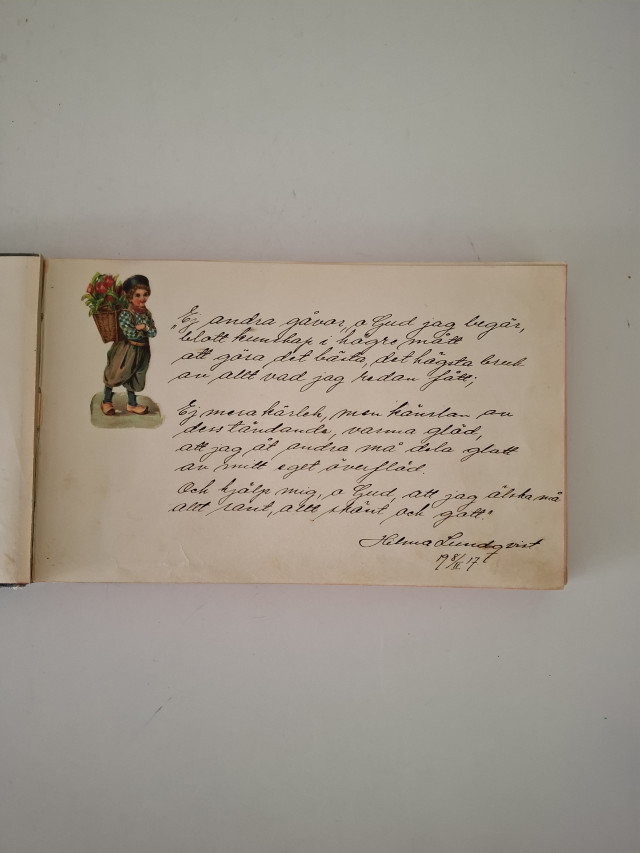 "Ej andra gåvor, o Gud jag begär,
blott kunskap i högre mått
att göra det bästa, det högsta bruk
av allt vad jag redan fått;
Ej mera kärlek, men känslan av
dess tändande, varma glöd,
att jag åt andra må dela glatt
av mitt eget överflöd.
Och hjälp mig, o Gud, att jag älska må
allt sant, allt skönt och gott."
Helma Lundqvist
19 8/IV 17